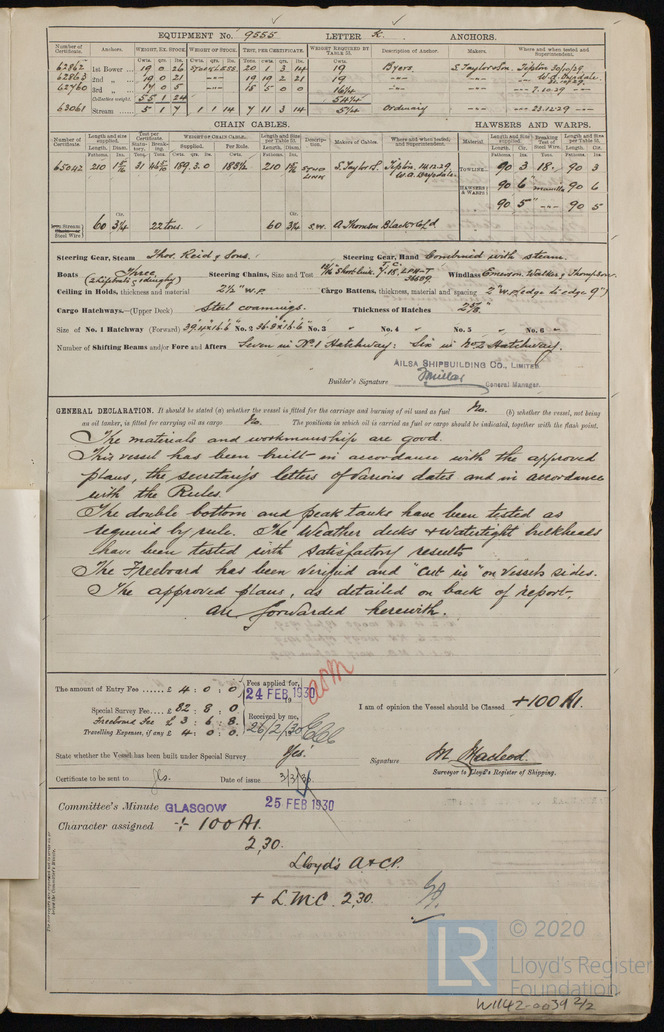 EQUIPMENT No. 9555 LETTER K. ANCHORS.
Number of Certificate. Anchors. WEIGHT, EX. STOCK. WEIGHT OF STOCK. TEST, PER CERTIFICATE. WEIGHT REQUIRED BY TABLE 53. Description of Anchor. Makers. Where and when tested and Superintendent.
Cwts. qrs. lbs. Tons. cwts. qrs. lbs. Cwts.
62862 1st Bower 19 0 26 STOCKLESS. 20 1 3 14 19 Byers. S. Taylor & Son. Tipton 30/10/29
62863 2nd " 19 0 21 -"- 19 19 2 21 19 -"-
62760 3rd " 17 0 5 -"- 15 5 0 0 16¼ -"- 7.10.29
Collective weight 55 1 24 54¼
63061 Stream 5 1 7 1 1 14 7 11 3 14 5¼ Ordinary -"- 23.12.29 -"-
CHAIN CABLES. HAWSERS AND WARPS.
Number of Certificate. Length and size supplied. Test per Certificate. WEIGHT OF CHAIN CABLE. Length and Size per Table 53. Description. Makers of Cables. Where and when tested; and Superintendent. Material Length and Size supplied. Breaking Test of Steel Wire. Length and Size per Table 53.
Length. Diam. Statutory. Breaking. Supplied. Per Rule. Length. Diam. Length. Cir. Length. Cir.
65042 210 189.2.0 185½ 210 STUD LINK S. Taylor & S. Tipton, 14.10.29. TOWLINE 90 3 18. 90 3
W.A. Drysdale. HAWSERS & WARPS 90 6" manilla 90 6
90 5" -"- 90 5
Iron Stream Steel Wire 60 3¼ 22 tons. 60 3¼ S.W. A. Thomson Blackwall
Steering Gear, Steam Thos. Reid & Sons. Steering Gear, Hand Combined with steam.
Boats Three (2 lifeboats & 1 dinghy) Steering Chains, Size and Test Short link. Windlass Emerson Walker & Thompson.
Ceiling in Holds, thickness and material 2½" W.P. Cargo Battens, thickness, material and spacing 2" W.P. (edge to edge 9")
Cargo Hatchways.—(Upper Deck) Steel coamings. Thickness of Hatches
Size of No. 1 Hatchway (Forward) 39'4" x 16'6" No. 2 36'9" x 16'6" No. 3 " No. 4 " No. 5 " No. 6 -
Number of Shifting Beams and/or Fore and Afters Seven in No. 1 Hatchway: Six in No. 2 Hatchway.
AILSA SHIPBUILDING CO., LIMITED
Builder's Signature J Millar General Manager.
GENERAL DECLARATION. It should be stated (a) whether the vessel is fitted for the carriage and burning of oil used as fuel No. (b) whether the vessel, not being
an oil tanker, is fitted for carrying oil as cargo No. The positions in which oil is carried as fuel or cargo should be indicated, together with the flash point.
The materials and workmanship are good.
This vessel has been built in accordance with the approved
plans, the secretary's letters of various dates and in accordance
with the Rules.
The double bottom and peak tanks have been tested as
required by rule. The Weather decks & watertight bulkheads
have been tested with satisfactory results
The Freeboard has been verified and "cut in" on vessels sides.
The approved plans, as detailed on back of report,
are forwarded herewith.
The amount of Entry Fee £ 4 : 0 : 0
Fees applied for, 24 FEB 1930
Special Survey Fee £ 82 : 8 : 0
Freeboard Fee £ 3 : 6 : 8
Travelling Expenses, if any £ 4 : 0 : 0
Received by me, 26/2/30
I am of opinion the Vessel should be Classed +100 A1.
State whether the Vessel has been built under Special Survey Yes.
Signature M. Macleod.
Surveyor to Lloyd's Register of Shipping.
Certificate to be sent to Gls. Date of issue 3/3/30
Committee's Minute GLASGOW 25 FEB 1930
Character assigned + 100 A1.
2,30.
Lloyd's A&CP.
+ L.M.C. 2,30.
© 2020
LR
Lloyd's Register
Foundation
W1142-0039 2/2